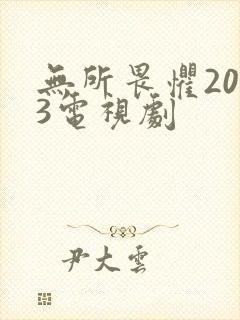 無所畏懼20
3電視劇
尹大雲